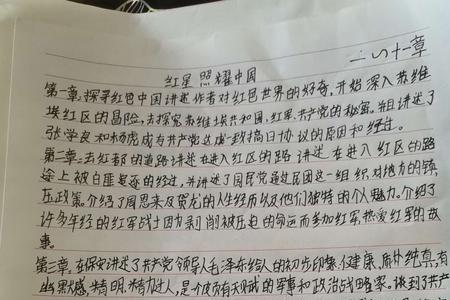 一~十一章
红星照耀中国
第一章,探寻红色中国讲述作者对红色世界的好奇,开始深入苏维
埃红区的冒险,去探究苏维埃共和国,红军,共产党的秘密。并且讲述了
张学良和杨虎成与共产党达成一致抗日协议的原因和经过。
第二章:去红都的道路讲述在进入红区的路讲述在进入红区的路
途上被白匪追逐的经过,并讲述了国民党通过民团这一组织,对地方的镇
压政策。介绍了周恩来及贺龙的人生经历以及他们独特的个人魅力。介绍了
许多年轻的红军战士因为剥削被压迫的命运而参加红军,热爱红军的故
事。
第三章,在保安讲述了共产党领导人毛泽东给人的初步印象,健康,质朴纯真,有
幽默感,精明,精力过人,是个颇有天赋的军事和政治战略家。谈到了共产